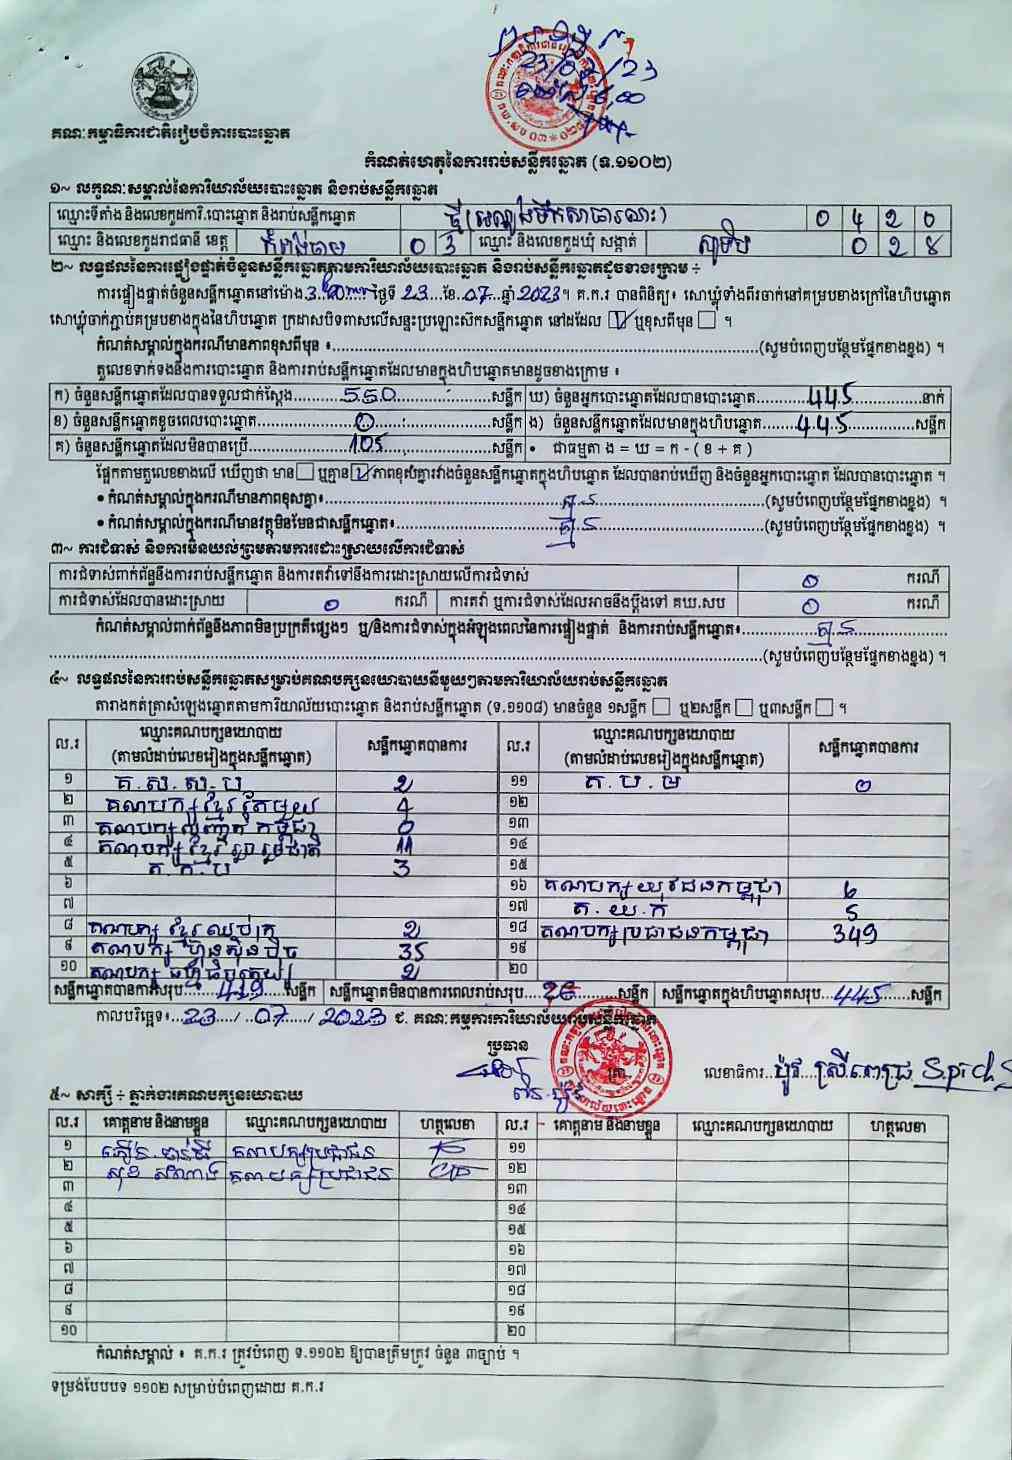 23/07/23
គណៈកម្មាធិការជាតិរៀបចំការបោះឆ្នោត
កំណត់ហេតុនៃការរាប់សន្លឹកឆ្នោត (ទ.១១០២)
១~ លក្ខណៈសម្គាល់នៃការិយាល័យបោះឆ្នោត និងរាប់សន្លឹកឆ្នោត
ឈ្មោះទីតាំង និងលេខកូដការិ.បោះឆ្នោត និងរាប់សន្លឹកឆ្នោត 0 4 2 0
ឈ្មោះ និងលេខកូដរាជធានី ខេត្ត កំពង់ចាម 0 3 ឈ្មោះ និងលេខកូដឃុំ សង្កាត់ 0 2 8
២~ លទ្ធផលនៃការផ្ទៀងផ្ទាត់ចំនួនសន្លឹកឆ្នោតតាមការិយាល័យបោះឆ្នោត និងរាប់សន្លឹកឆ្នោតដូចខាងក្រោម ÷
ការផ្ទៀងផ្ទាត់ចំនួនសន្លឹកឆ្នោតនៅម៉ោង 3 ថ្ងៃទី 23 ខែ 07 ឆ្នាំ 2023។ គ.ក.រ បានពិនិត្យ៖ សោឃ្លុំទាំងពីរចាក់នៅគម្របខាងក្រៅនៃហិបឆ្នោត
សោឃ្លុំចាក់ភ្ជាប់គម្របខាងក្នុងនៃហិបឆ្នោត ក្រដាសបិទពាសលើសន្ទះប្រឡោះស៊កសន្លឹកឆ្នោត នៅដដែល ☑ ឬខុសពីមុន ☐ ។
កំណត់សម្គាល់ក្នុងករណីមានភាពខុសពីមុន ៖ (សូមបំពេញបន្ថែមផ្នែកខាងខ្នង) ។
តួលេខទាក់ទងនឹងការបោះឆ្នោត និងការរាប់សន្លឹកឆ្នោតដែលមានក្នុងហិបឆ្នោតមានដូចខាងក្រោម ៖
ក) ចំនួនសន្លឹកឆ្នោតដែលបានទទួលជាក់ស្តែង 550 សន្លឹក ឃ) ចំនួនអ្នកបោះឆ្នោតដែលបានបោះឆ្នោត 445 នាក់
ខ) ចំនួនសន្លឹកឆ្នោតខូចពេលបោះឆ្នោត 0 សន្លឹក ង) ចំនួនសន្លឹកឆ្នោតដែលមានក្នុងហិបឆ្នោត 445 សន្លឹក
គ) ចំនួនសន្លឹកឆ្នោតដែលមិនបានប្រើ 105 សន្លឹក • ជាធម្មតា ង = ឃ = ក - ( ខ + គ )
ផ្អែកតាមតួលេខខាងលើ ឃើញថា មាន ☐ ឬគ្មាន ☑ ភាពខុសគ្នារវាងចំនួនសន្លឹកឆ្នោតក្នុងហិបឆ្នោត ដែលបានរាប់ឃើញ និងចំនួនអ្នកបោះឆ្នោត ដែលបានបោះឆ្នោត ។
• កំណត់សម្គាល់ក្នុងករណីមានភាពខុសគ្នា៖ គ្មាន (សូមបំពេញបន្ថែមផ្នែកខាងខ្នង) ។
• កំណត់សម្គាល់ក្នុងករណីមានវត្ថុមិនមែនជាសន្លឹកឆ្នោត៖ គ្មាន (សូមបំពេញបន្ថែមផ្នែកខាងខ្នង) ។
៣~ ការជំទាស់ និងការមិនយល់ព្រមតាមការដោះស្រាយលើការជំទាស់
ការជំទាស់ពាក់ព័ន្ធនឹងការរាប់សន្លឹកឆ្នោត និងការតវ៉ាទៅនឹងការដោះស្រាយលើការជំទាស់ 0 ករណី
ការជំទាស់ដែលបានដោះស្រាយ 0 ករណី ការតវ៉ា ឬការជំទាស់ដែលអាចនឹងប្តឹងទៅ គឃ.សប 0 ករណី
កំណត់សម្គាល់ពាក់ព័ន្ធនឹងភាពមិនប្រក្រតីផ្សេងៗ ឬ/និងការជំទាស់ក្នុងអំឡុងពេលនៃការផ្ទៀងផ្ទាត់ និងការរាប់សន្លឹកឆ្នោត៖ គ្មាន
(សូមបំពេញបន្ថែមផ្នែកខាងខ្នង) ។
៤~ លទ្ធផលនៃការរាប់សន្លឹកឆ្នោតសម្រាប់គណបក្សនយោបាយនីមួយៗតាមការិយាល័យរាប់សន្លឹកឆ្នោត
តារាងកត់ត្រាសំឡេងឆ្នោតតាមការិយាល័យបោះឆ្នោត និងរាប់សន្លឹកឆ្នោត (ទ.១១០៨) មានចំនួន ១សន្លឹក ☐ ឬ២សន្លឹក ☐ ឬ៣សន្លឹក ☐ ។
ល.រ ឈ្មោះគណបក្សនយោបាយ (តាមលំដាប់លេខរៀងក្នុងសន្លឹកឆ្នោត) សន្លឹកឆ្នោតបានការ ល.រ ឈ្មោះគណបក្សនយោបាយ (តាមលំដាប់លេខរៀងក្នុងសន្លឹកឆ្នោត) សន្លឹកឆ្នោតបានការ
១ គ.ស.ស.ប 2 ១១ គ.ប.ម 0
២ គណបក្សខ្មែរតែមួយ 4 ១២
៣ គណបក្សបញ្ញាតិកម្ពុជា 0 ១៣
៤ គណបក្សខ្មែររួបរួមជាតិ 11 ១៤
៥ គ.ក.ប 3 ១៥
៦ ១៦ គណបក្សយុវជនកម្ពុជា 6
៧ ១៧ គ.យ.ក 5
៨ គណបក្សខ្មែរឈប់ក្រ 2 ១៨ គណបក្សប្រជាជនកម្ពុជា 349
៩ គណបក្សហ៊្វុនស៊ិនប៉ិច 35 ១៩
១០ គណបក្សធម្មាធិបតេយ្យ 2 ២០
សន្លឹកឆ្នោតបានការសរុប 419 សន្លឹក សន្លឹកឆ្នោតមិនបានការពេលរាប់សរុប 26 សន្លឹក សន្លឹកឆ្នោតក្នុងហិបឆ្នោតសរុប 445 សន្លឹក
កាលបរិច្ឆេទ៖ 23 / 07 / 2023 ជ. គណៈកម្មការការិយាល័យរាប់សន្លឹកឆ្នោត
ប្រធាន
លេខាធិការ ប៉ូវ ស្រីពេជ្រ
៥~ សាក្សី ÷ ភ្នាក់ងារគណបក្សនយោបាយ
ល.រ គោត្តនាម និងនាមខ្លួន ឈ្មោះគណបក្សនយោបាយ ហត្ថលេខា ល.រ គោត្តនាម និងនាមខ្លួន ឈ្មោះគណបក្សនយោបាយ ហត្ថលេខា
១ គណបក្សប្រជាជន ១១
២ សុខ សំណាង គណបក្សប្រជាជន ១២
៣ ១៣
៤ ១៤
៥ ១៥
៦ ១៦
៧ ១៧
៨ ១៨
៩ ១៩
១០ ២០
កំណត់សម្គាល់ ៖ គ.ក.រ ត្រូវបំពេញ ទ.១១០២ ឱ្យបានត្រឹមត្រូវ ចំនួន ៣ច្បាប់ ។
ទម្រង់បែបបទ ១១០២ សម្រាប់បំពេញដោយ គ.ក.រ